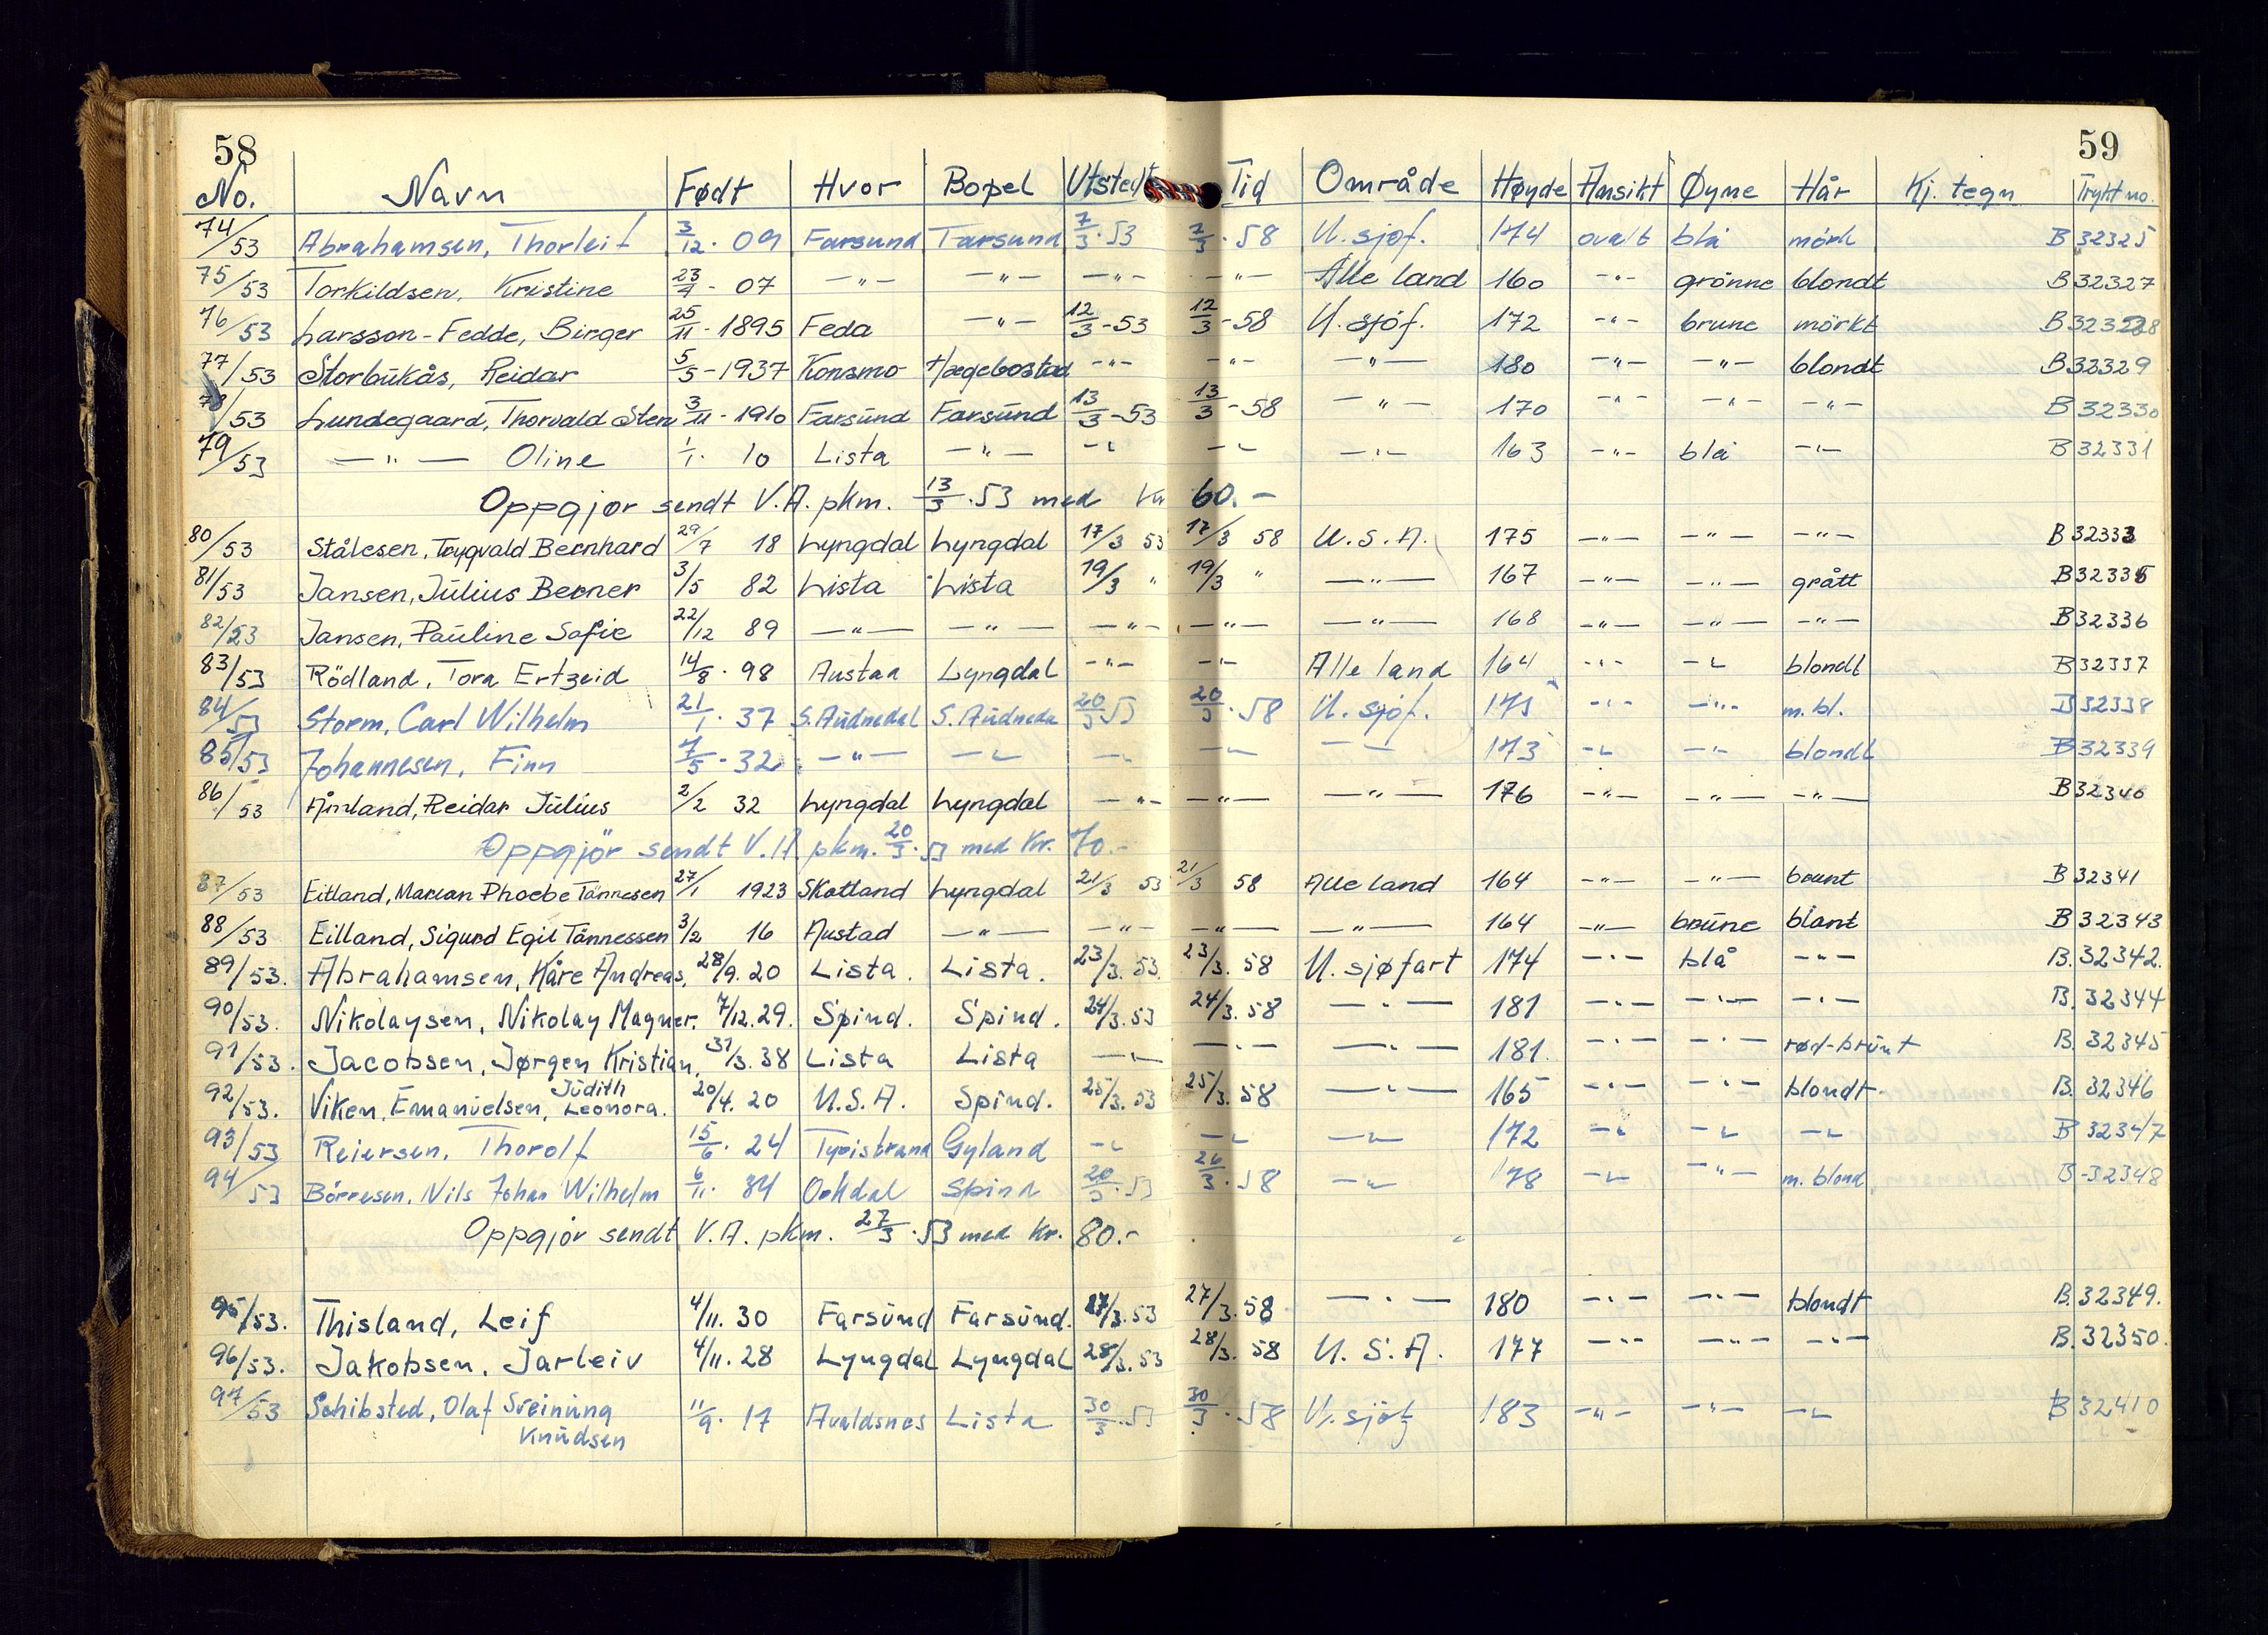 58
59
No. Navn Født Hvor Bopel Utstedt Tid Område Høyde Ansikt Øyne Hår Kj. tegn Trykt no.
74/53 Abrahamsen, Thorleif 3/12. 09 Farsund Farsund 7/3.53 7/3.58 U. sjøf. 174 ovalt blå mörk B 32325
75/53 Torkildsen, Kristine 23/4 - 07 —"— —"— —"— —"— Alle land 160 -"- grönne blondt B 32327
76/53 Larsson-Fedde, Birger 25/11 - 1895 Feda —"— 12/3-53 12/3-58 U. sjöf. 172 -"- brune mörkt B 32328
77/53 Storbukås, Reidar 5/5 - 1937 Konsmo Hægebostad -"- -"- —"— 180 -"- -"- blondt B 32329
78/53 Lundegaard, Thorvald Sten 3/11 - 1910 Farsund Farsund 13/3-53 13/3-58 —"— 170 -"- -"- -"- B 32330
79/53 —"— Oline 1/1. 10 Lista —"— -"- -"- -"- 163 -"- blå -"- B 32331
Oppgjør sendt V.A. pkm. 13/3.53 med Kr 60.-
80/53 Stålesen, Trygvald Bernhard 29/7 18 Lyngdal Lyngdal 17/3 53 17/3 58 U.S.A. 175 —"— —"— —"— B 32333
81/53 Jansen, Julius Berner 3/5 82 Lista Lista 19/3 " 19/3 " —"— 167 —"— —"— grått B 32335
82/53 Jansen, Pauline Sofie 22/12 89 —"— —"— —"— —"— —"— 168 —"— —"— —"— B 32336
83/53 Rödland, Tora Ertzeid 14/8. 98 Austad Lyngdal -"- -"- Alle land 164 -"- -"- blondt B 32337
84/53 Storm, Carl Wilhelm 21/1. 37 S. Audnedal S. Audneda 20/3 53 20/3.58 U. sjöf. 175 -"- -"- m. bl. B 32338
85/53 Johannesen, Finn 7/5 - 32 —"— -"- -"- -"- -"- 173 -"- -"- blondt B 32339
86/53 Åmland, Reidar Julius 2/2 32 Lyngdal Lyngdal —"— —"— —"— 176 —"— —"— —"— B 32340
Oppgjör sendt V.A. pkm. 20/3.53 med Kr. 70.-
87/53 Eitland, Marian Phoebe Tännesen 27/1 1923 Skottland Lyngdal 21/3 53 21/3 58 Alle land 164 —"— —"— brunt B 32341
88/53 Eitland, Sigurd Egil Tännessen 3/2 16 Austad —"— —"— —"— —"— 164 —"— brune blant B 32343
89/53. Abrahamsen, Kåre Andreas, 28/9. 20 Lista. Lista. 23/3. 53. 23/3. 58 U. sjøfart 174 -"- blå -"- B. 32342.
90/53. Nikolaysen, Nikolay Magner. 7/12. 29. Spind. Spind. 24/3. 53 24/3. 58 —"— 181 -"- -"- -"- B. 32344
91/53. Jacobsen, Jørgen Kristian, 31/3. 38 Lista Lista —"— —"— —"— 181. -"- -"- rød-brunt B. 32345
92/53. Viken, Emanuelsen, Judith Leonora. 20/4. 20 U.S.A. Spind. 25/3. 53 25/3. 58 —"— 165 -"- -"- blondt B. 32346
93/53 Reiersen, Thorolf 15/6. 24 Tyristrand Gyland -"- -"- -"- 172 -"- -"- -"- B 32347
94/53 Börresen, Nils Johan Wilhelm 6/11. 34 Orkdal Spind 26/3.53 26/3.58 -"- 178 -"- -"- m. blond B-32348
Oppgjör sendt V.A. pkm. 27/3.53 med Kr. 80.-
95/53. Thisland, Leif 4/11. 30 Farsund Farsund. 27/3. 53 27/3. 58 —"— 180 -"- -"- blondt B. 32349.
96/53. Jakobsen, Jarleiv 4/11. 28 Lyngdal Lyngdal 28/3. 53 28/3. 58 U.S.A. 177 -"- -"- -"- B. 32350.
97/53 Schibsted, Olaf Sveinung Knudsen 11/9. 17 Avaldsnes Lista 30/3.53 30/3.58 U. sjöf 183 -"- -"- -"- B 32410